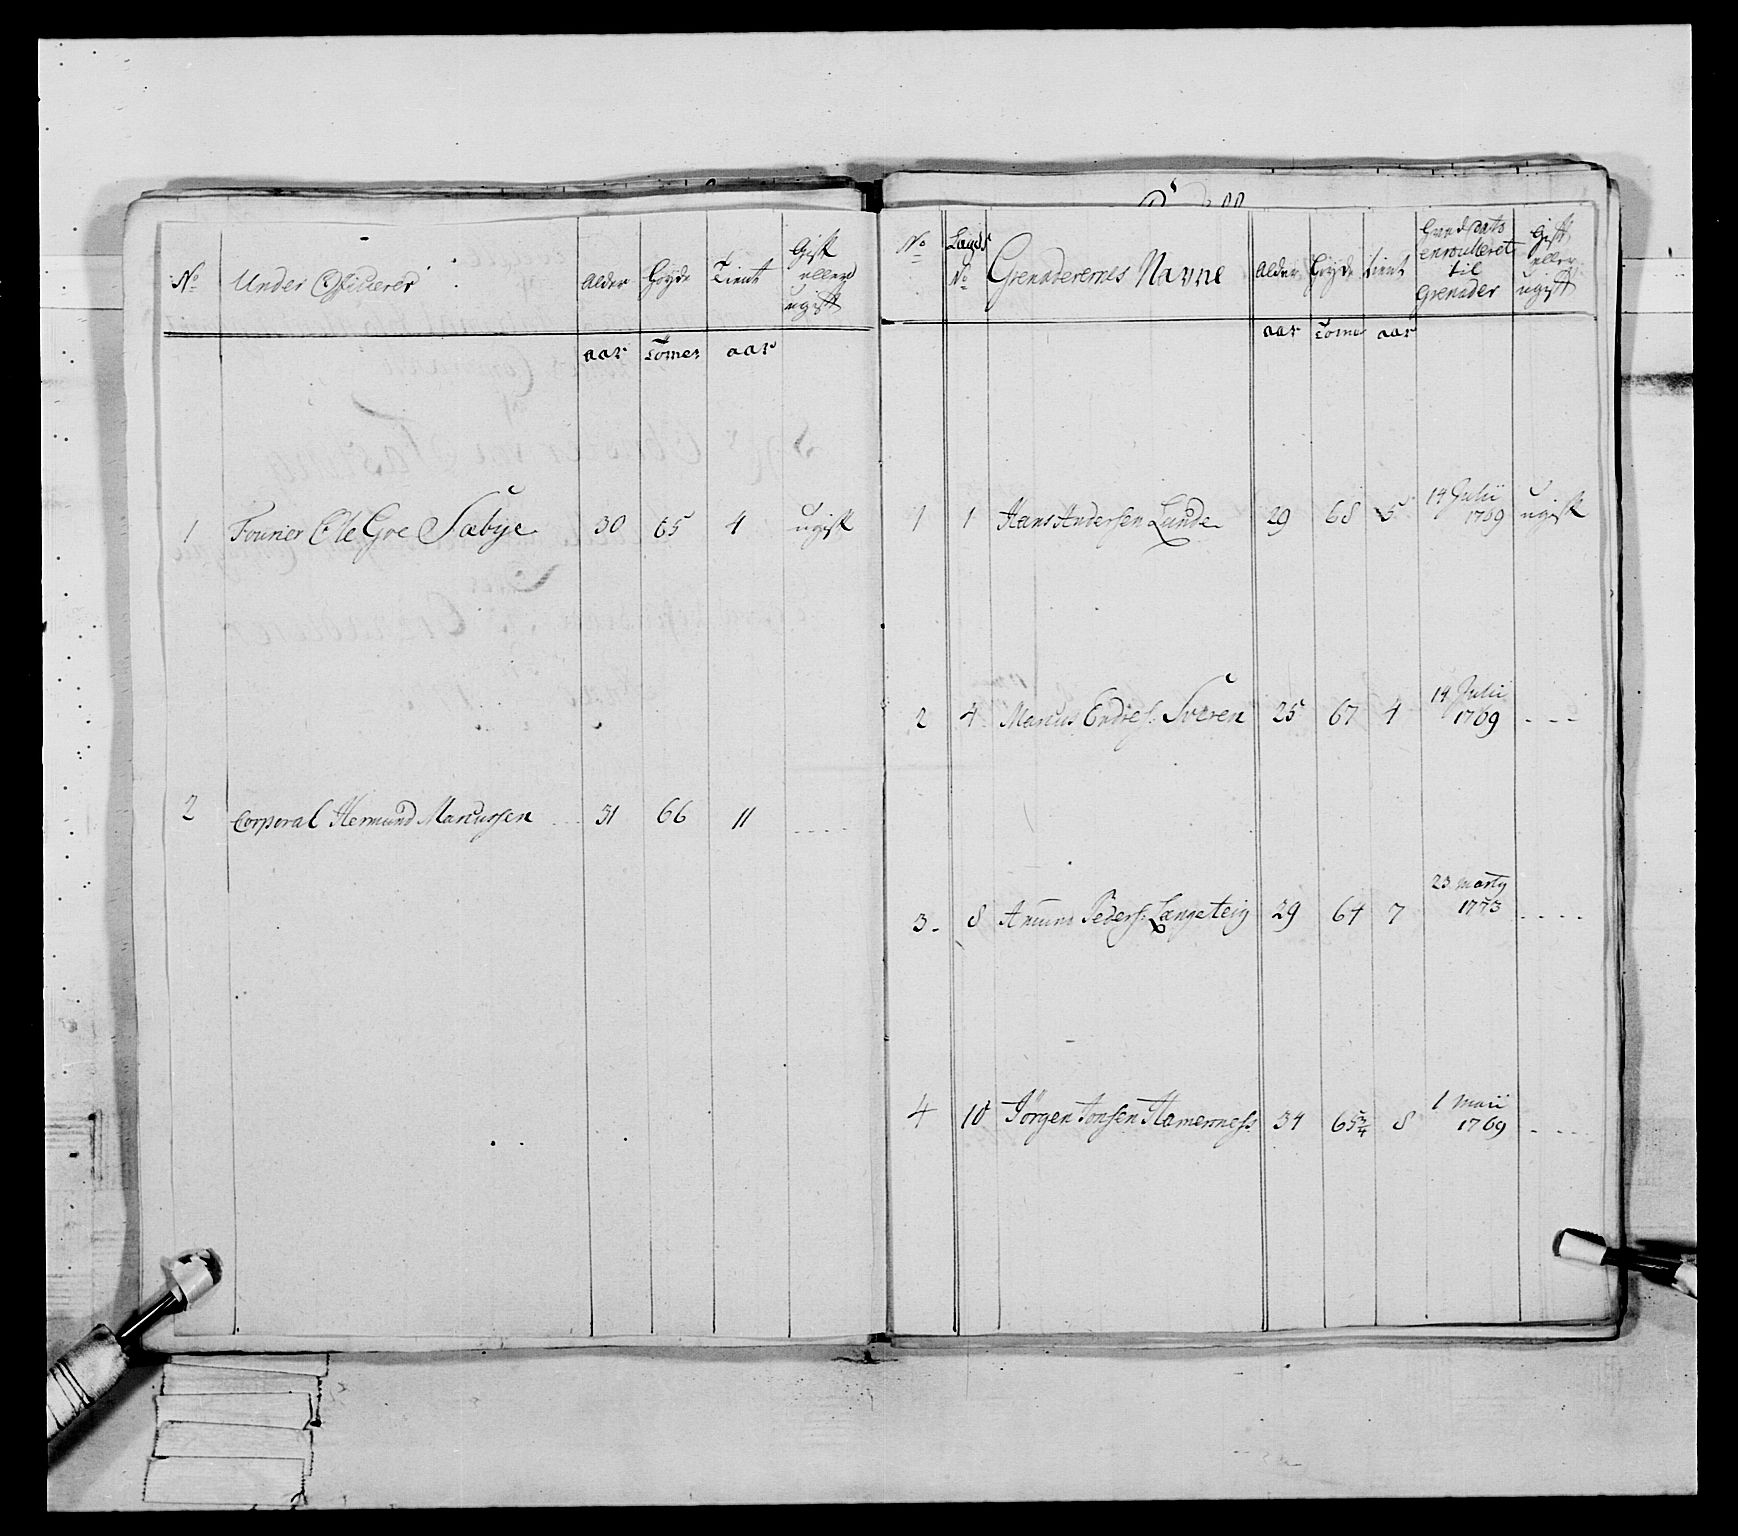 No Under Officierer Alder Høyde Tient Gift eller ugift
aar Tomer aar
1 Fourier Ole Gre Sæbye 30 65 4 ugift
2 Corporal Hermund Marcussen 31 66 11 - - - -
No Lægds No Grenaderernes Navne Alder Høyde tient enroulleret til Grenader Gift eller ugift
aar Tomer aar
1 1 Hans Andersen Lunde 29 68 5 14 Julii 1769 ugift
2 4 Marcus Endres: Sveren 25 67 4 14 Julii 1769 - - -
3 8 Amund Peders: Langeteig 29 64 7 23 Marty 1773 - - - -
4 10 Jörgen Jonsen Hamerness 34 65 3/4 8 1 Maii 1769 - - - -